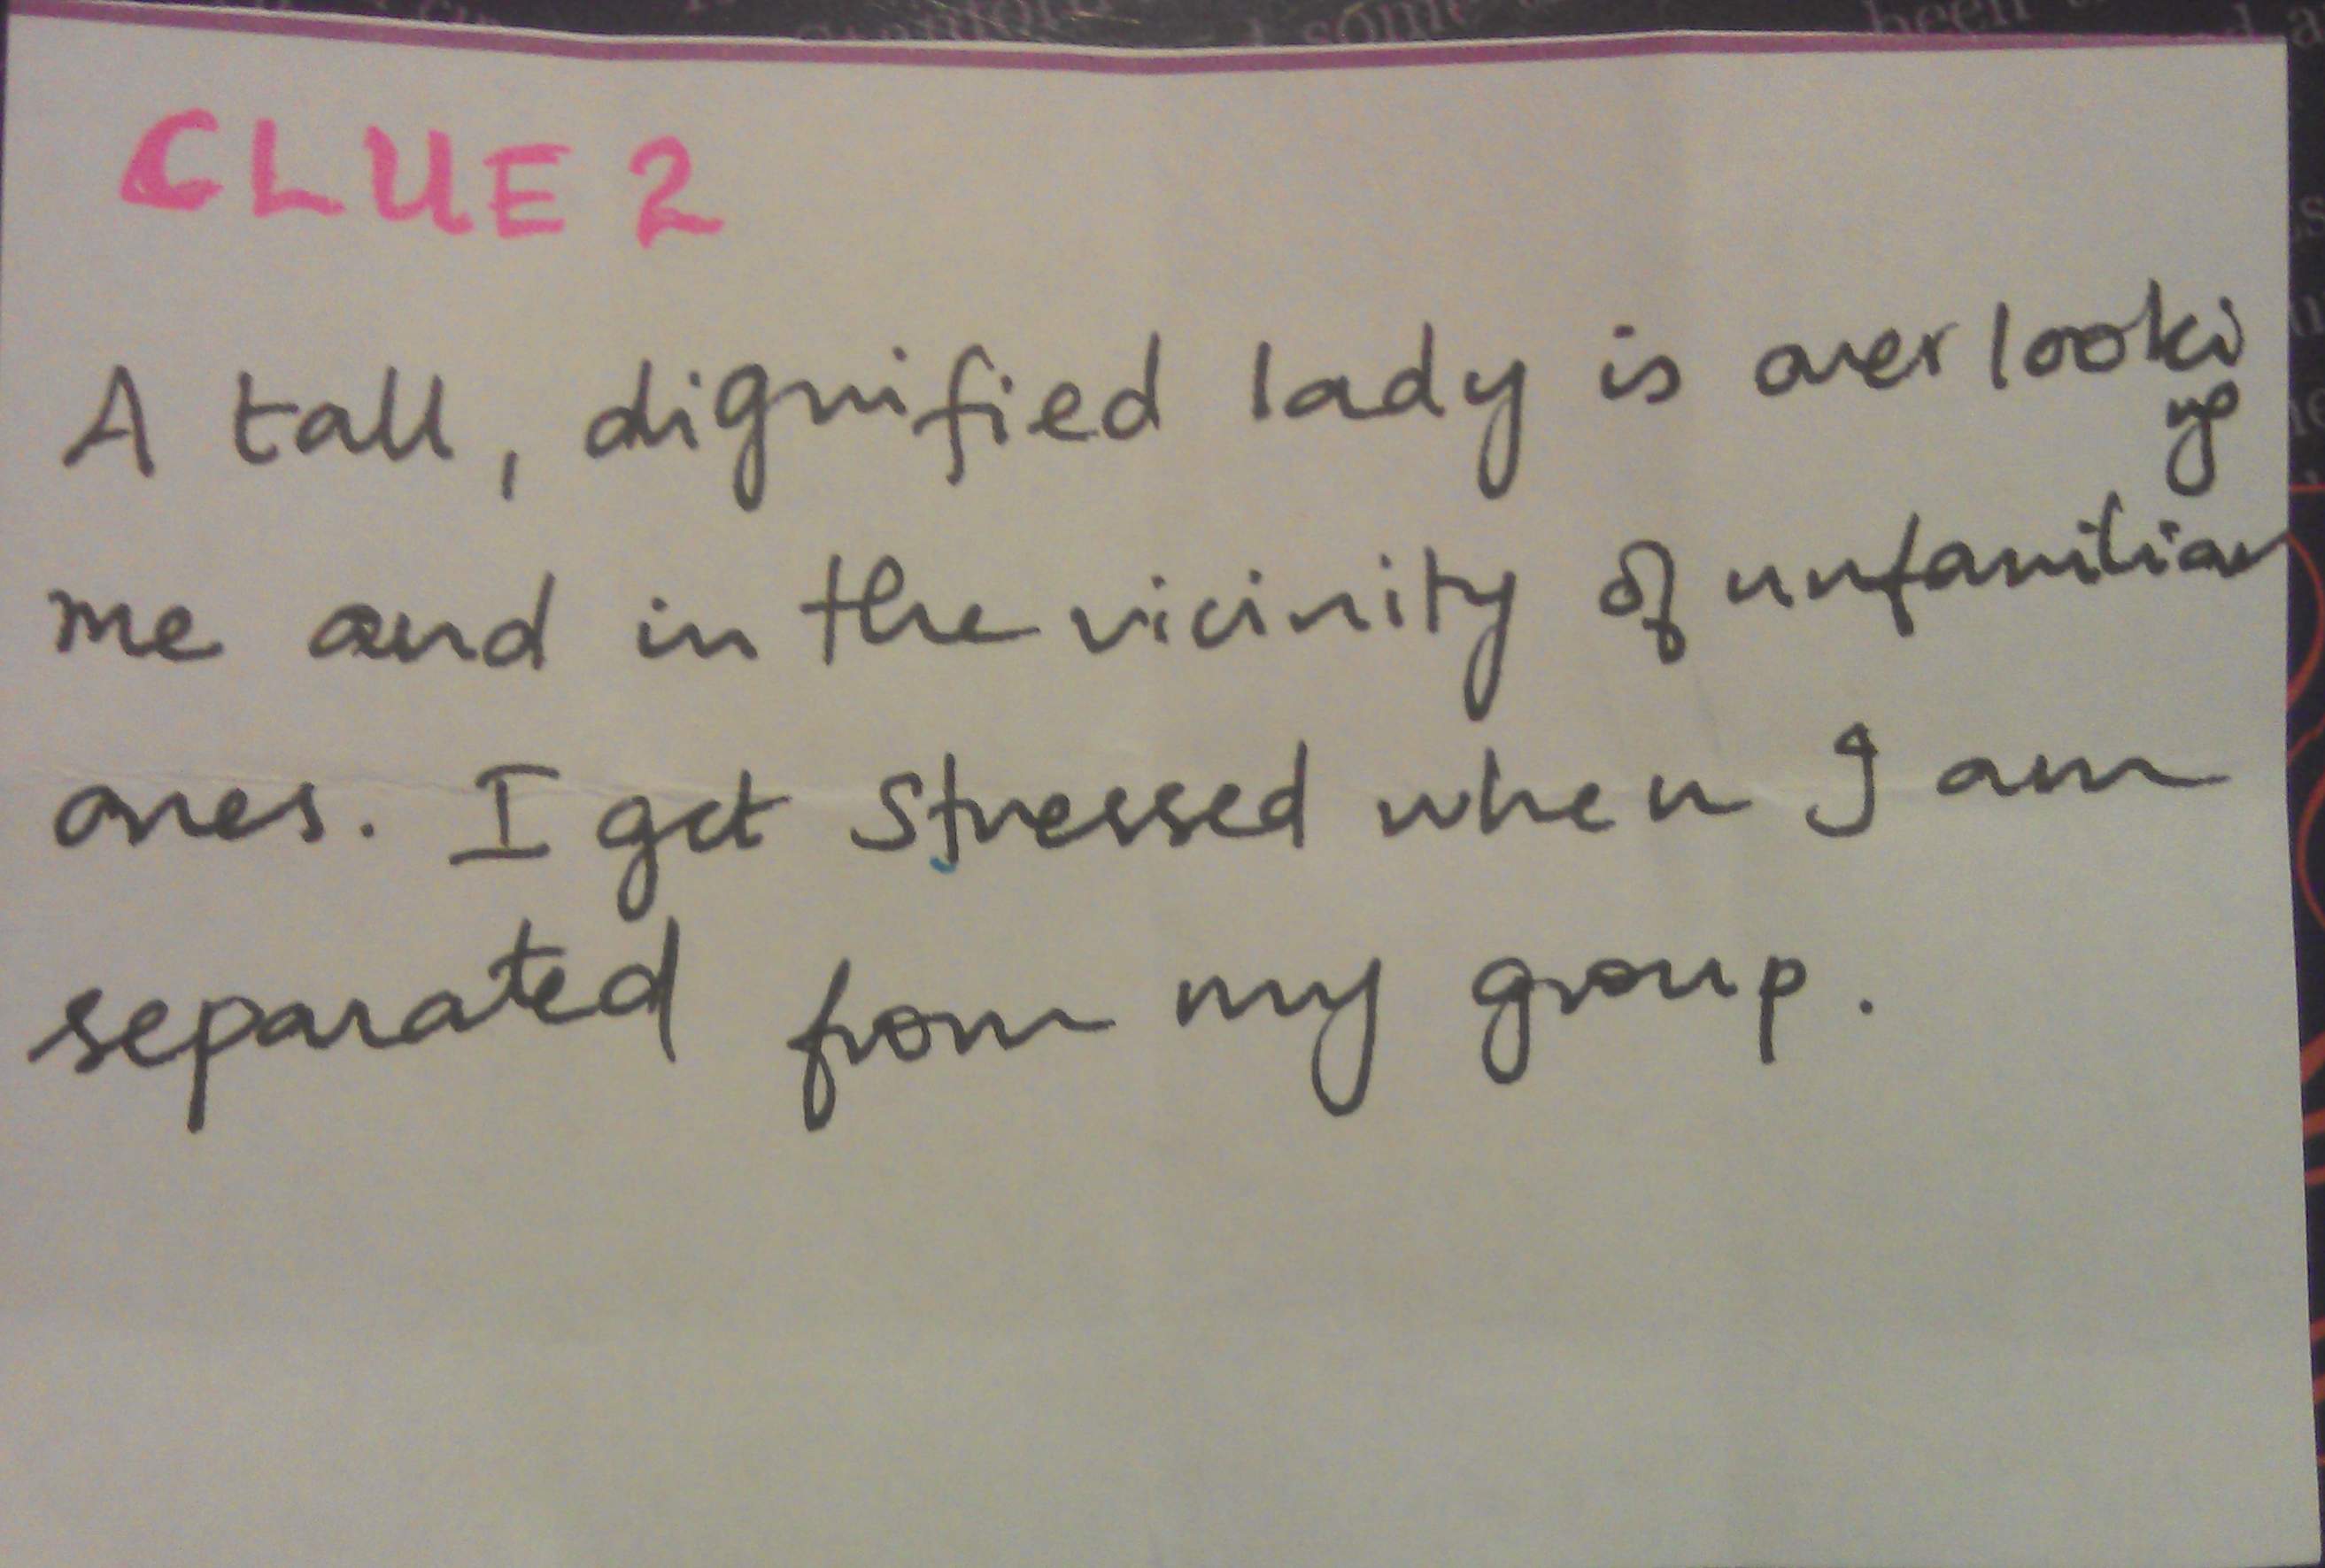 CLUE 2
A tall, dignified lady is overlooking
me and in the vicinity of unfamiliar
ones. I get stressed when I am
separated from my group.